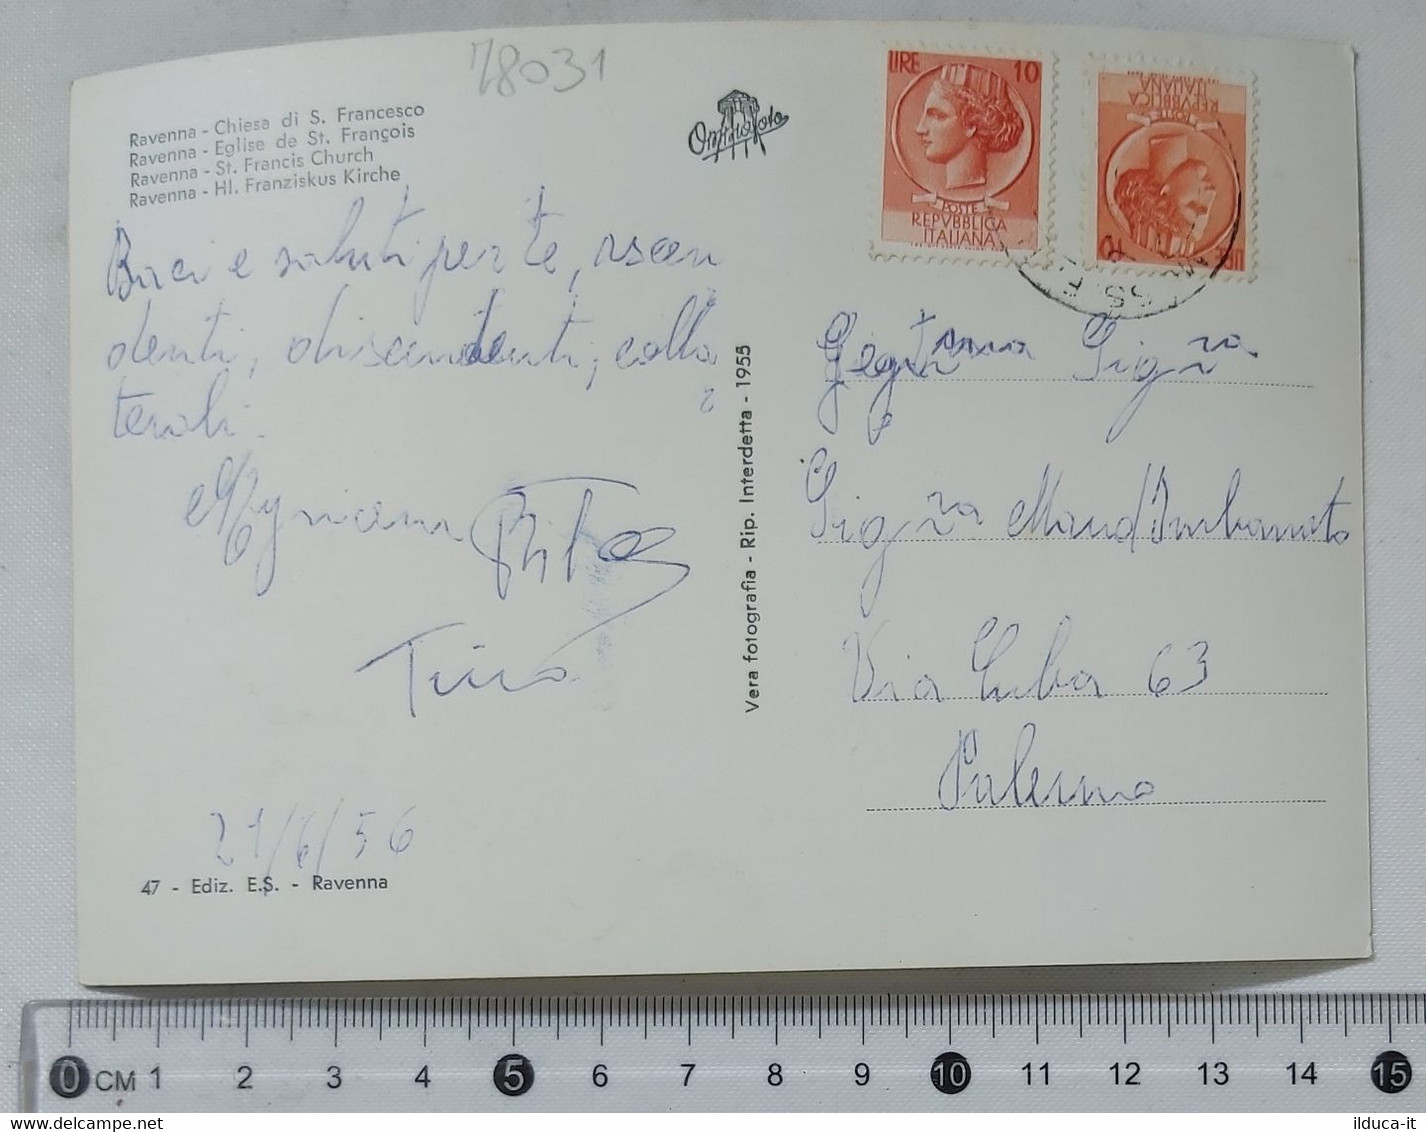 78031
Ravenna - Chiesa di S. Francesco
Ravenna - Eglise de St. François
Ravenna - St. Francis Church
Ravenna - Hl. Franziskus Kirche
Baci e saluti per te, ascen
denti, discendenti, colla
terali.
Myriam
Tino
21/6/56
47 - Ediz. E.S. - Ravenna
Vera fotografia - Rip. Interdetta - 1955
LIRE 10
POSTE
REPVBBLICA
ITALIANA
LIRE
POSTE
REPVBBLICA
ITALIANA
Sig ra
Sig ra Maud
Via Cuba 63
Palermo
0 CM 1 2 3 4 5 6 7 8 9 10 11 12 13 14 15
ilduca-it